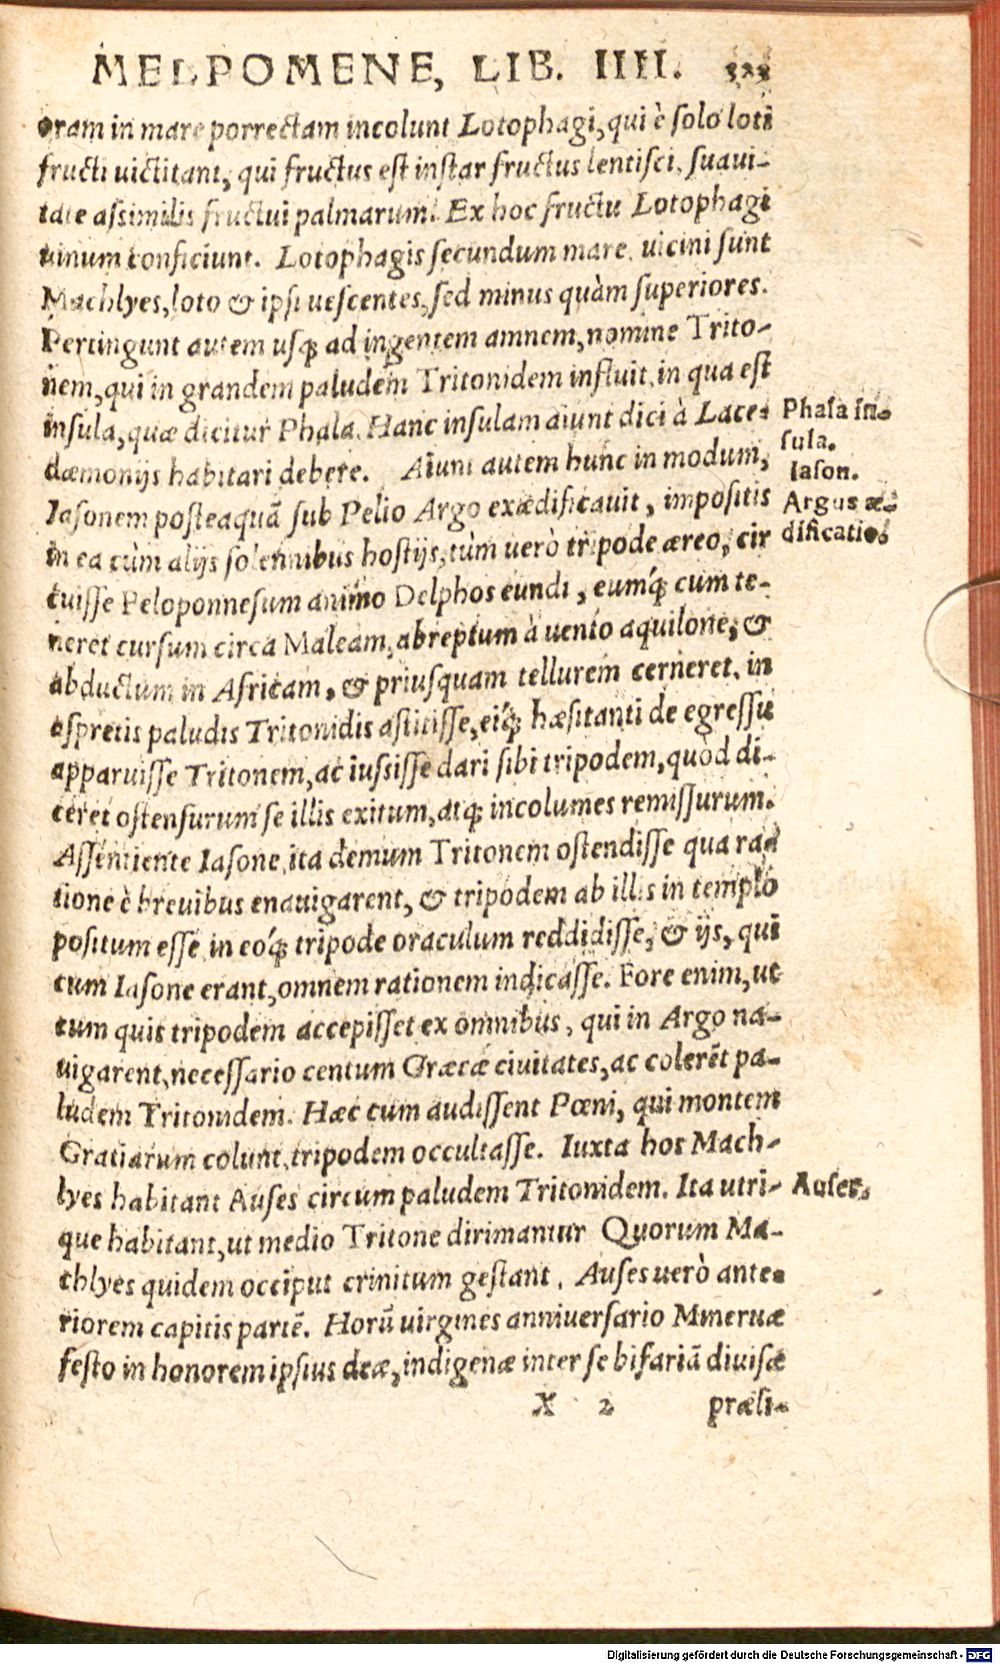 MELPOMENE, LIB. IIII. 323
oram in mare porrectam incolunt Lotophagi, qui è solo loti
fructi uictitant, qui fructus est instar fructus lentisci, suaui-
tate assimilis fructui palmarum. Ex hoc fructu Lotophagi
uinum conficiunt. Lotophagis secundum mare, uicini sunt
Machlyes, loto & ipsi uescentes, sed minus quàm superiores.
Pertingunt autem usq; ad ingentem amnem, nomine Trito-
nem, qui in grandem paludem Tritonidem influit, in qua est
insula, quæ dicitur Phala. Hanc insulam aiunt dici à Lace-
Phala in-
sula.
dæmonijs habitari debere. Aiunt autem hunc in modum,
Iason.
Iasonem posteaquã sub Pelio Argo exædificauit, impositis
Argus æ-
in ea cùm alijs solennibus hostijs, tùm uerò tripode æreo, cir
dificatio.
cuisse Peloponnesum animo Delphos eundi, eumq́; cum te-
neret cursum circa Maleam, abreptum à uento aquilone, &
abductum in Africam, & priusquam tellurem cerneret, in
aspretis paludis Tritonidis astitisse, eiq́; hæsitanti de egressu
apparuisse Tritonem, ac iussisse dari sibi tripodem, quòd di-
ceret ostensurum se illis exitum, atq; incolumes remissurum.
Assentiente Iasone, ita demum Tritonem ostendisse qua ra-
tione è breuibus enauigarent, & tripodem ab illis in templo
positum esse, in eoq́; tripode oraculum reddidisse, & ijs, qui
cum Iasone erant, omnem rationem indicasse. Fore enim, ut
cum quis tripodem accepisset ex omnibus, qui in Argo na-
uigarent, necessario centum Græcæ ciuitates, ac colerēt pa-
ludem Tritonidem. Hæc cum audissent Pœni, qui montem
Gratiarum colunt, tripodem occultasse. Iuxta hos Mach-
lyes habitant Auses circum paludem Tritonidem. Ita utri-
Auses.
que habitant, ut medio Tritone dirimantur Quorum Ma-
chlyes quidem occiput crinitum gestant, Auses uerò ante-
riorem capitis partē. Horū uirgines anniuersario Mineruæ
festo in honorem ipsius deæ, indigenæ inter se bifariã diuisæ
X 2 præsi-
Digitalisierung gefördert durch die Deutsche Forschungsgemeinschaft - DFG